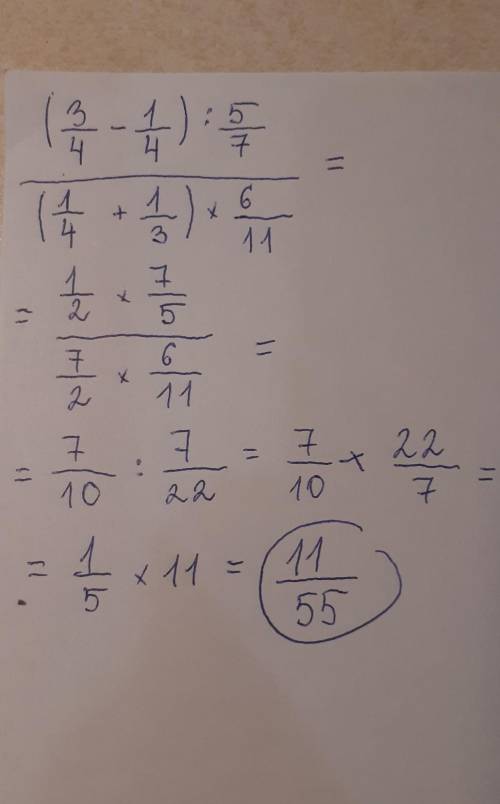 (3/4 - 1/4) : 5/7
(1/4 + 1/3) × 6/11 =
= 1/2 × 7/5
7/2 × 6/11 =
= 7/10 : 7/22 = 7/10 × 22/7 =
= 1/5 × 11 = 11/55